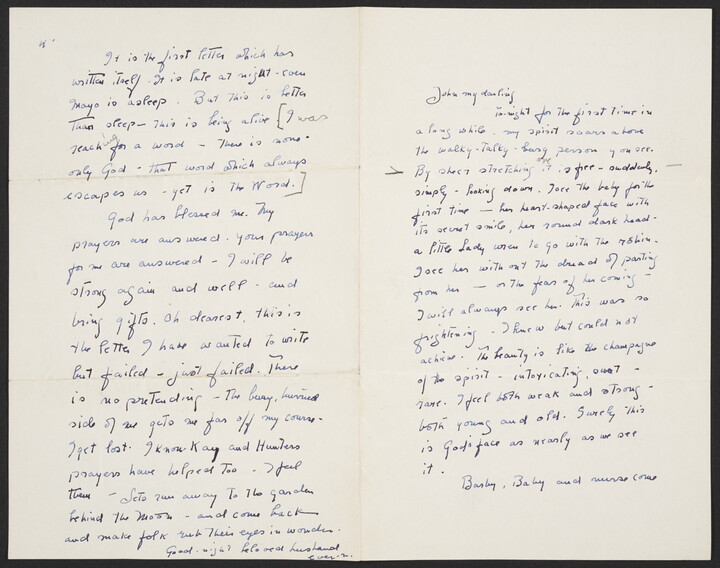 It is the first letter which has
written itself. It is late at night - even
Mayo is asleep. But this is better
than sleep - this is being alive [I was
reaching for a word - there is none -
only God - that word which always
escapes us - yet is the Word.]
God has blessed me. My
prayers are answered. your prayers
for me are answered - I will be
strong again and well - and
bring gifts. Oh dearest, this is
the letter I have wanted to write
but failed - just failed. There
is no pretending - the busy, hurried
side of me gets me far off my course -
I get lost. I know Kay and Hunters
prayers have helped too - I feel
them - Lets run away to the garden
behind the Moon - and come back
and make folk rub their eyes in wonder.
Good-night beloved husband
John my darling
To-night for the first time in
a long while. my spirit soars above
the walky-talky-busy person you see.
By sheer stretching it is free - suddenly,
simply - looking down. I see the baby for the
first time — her heart-shaped face with
its secret smile, her round dark head -
a little Lady wren to go with the robin.
I see her without the dread of parting
from her — or the fear of her coming -
I will always see her. This was so
frightening - I knew but could not
achieve. The beauty is like the champagne
of the spirit - intoxicating,
rare. I feel both weak and strong -
both young and old. Surely this
is God's face as nearly as we see
it.
Barby, Baby and nurse come